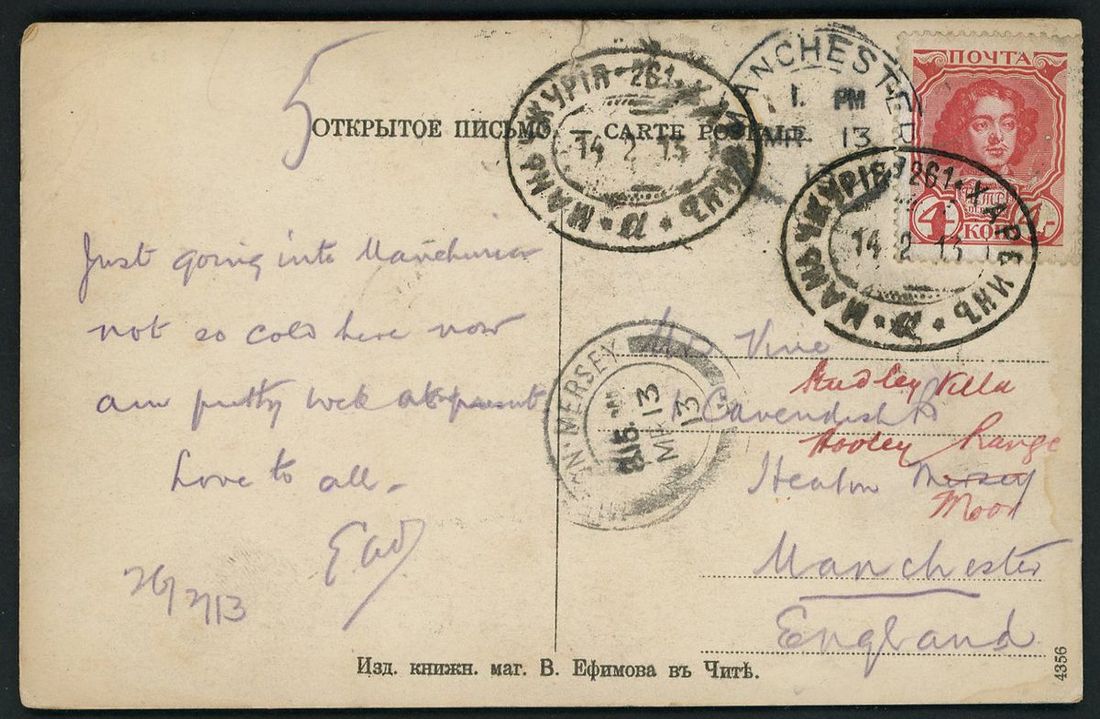 5
ОТКРЫТОЕ ПИСЬМО. — CARTE POSTALE.
МАНЬЧЖУРІЯ · 261 · ХАРБИНЪ
14 2 13
MANCHESTER
1. PM
MR 13
13
ПОЧТА
4 КОП. 4
МАНЬЧЖУРІЯ · 261 · ХАРБИНЪ
14 2 13
Just going into Manchuria
not so cold here now
am pretty well at present
Love to all –
26/2/13
MERSEY
MR 13
13
Vine
Cavendish Rd
Heaton Mersey
Studley Villa
Hooley Range
Moor
Manchester
England
Изд. книжн. маг. В. Ефимова въ Читѣ.
4356